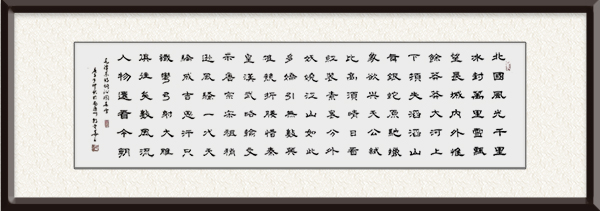 北國風光千里
冰封萬里雪飄
望長城内外惟
餘莽莽大河上
下頓失滔滔山
舞銀蛇原馳蠟
象欲與天公試
比高須晴日看
紅裝素裹分外
妖嬈江山如此
多嬌引無數英
雄競折腰惜秦
皇漢武略輸文
采唐宗宋祖稍
遜風騷一代天
驕成吉思汗只
識彎弓射大雕
俱往矣數風流
人物還看今朝
毛澤東詞沁園春雪